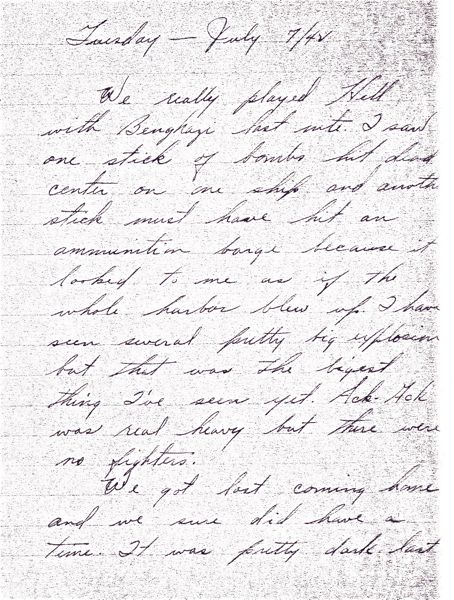 Tuesday — July 7/42
We really played Hell
with Benghazi last nite. I saw
one stick of bombs hit dead
center on one ship and anoth
stick must have hit an
ammunition barge because it
looked to me as if the
whole harbor blew up. I have
seen several pretty big explosion
but that was the bigest
thing I've seen yet. Ack-Ack
was real heavy but there were
no fighters.
We got lost coming home
and we sure did have a
time. It was pretty dark last